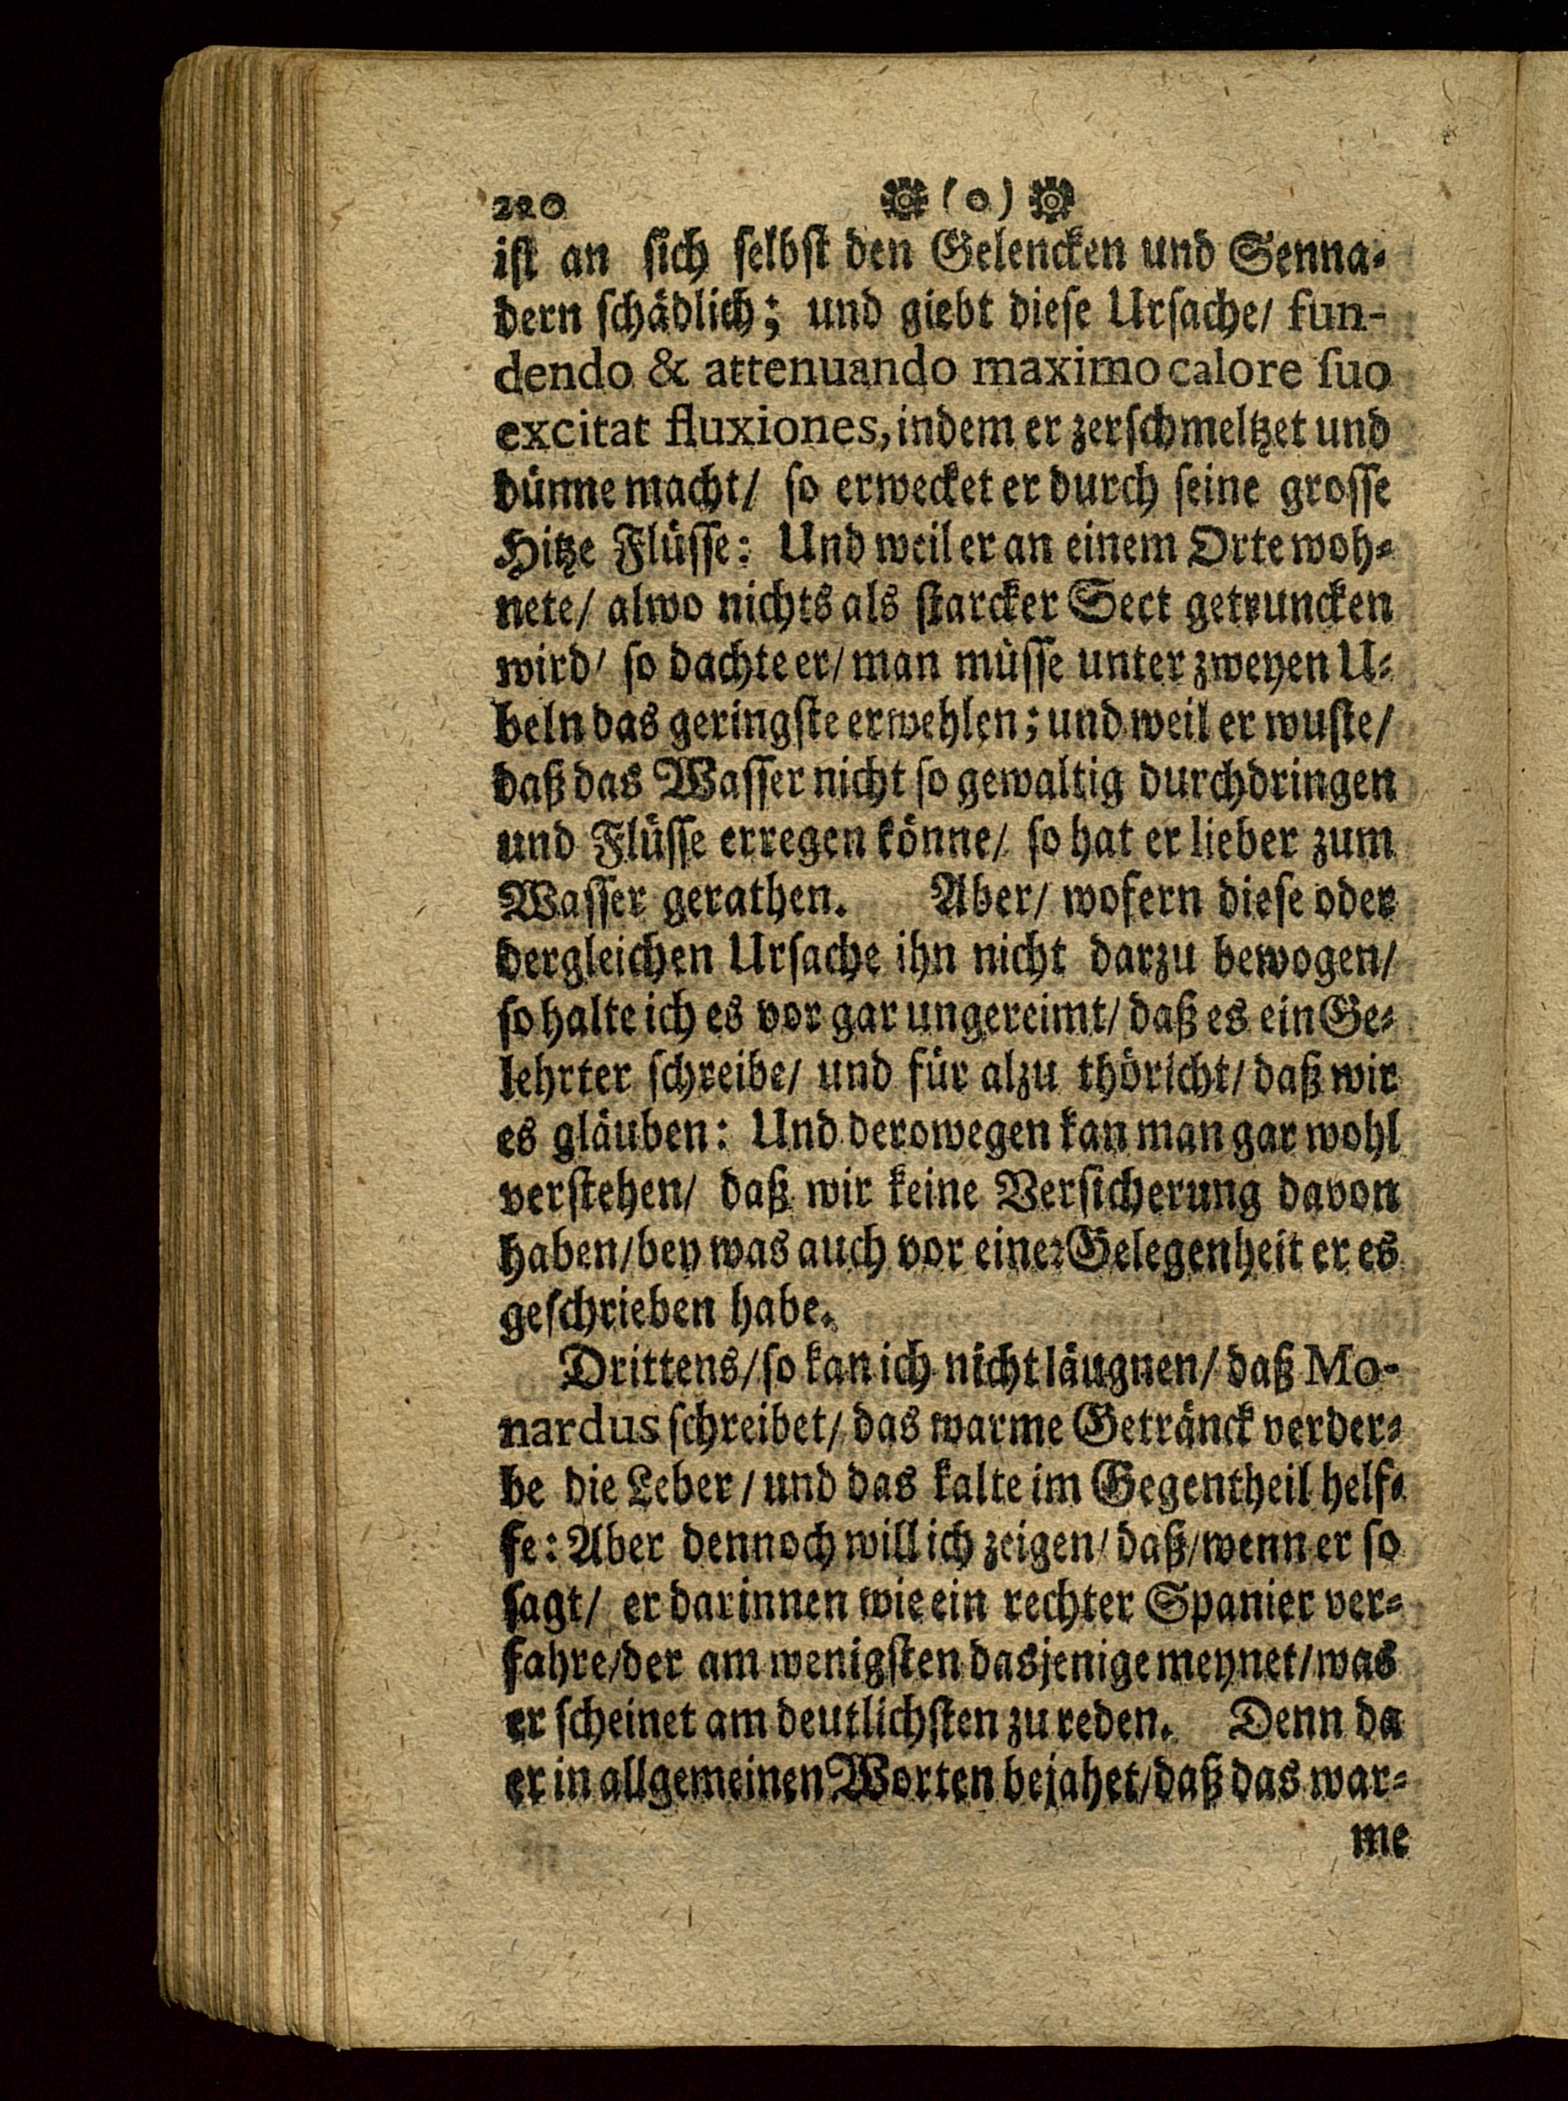 220 (0)
ist an sich selbst den Gelencken und Senna-
dern schädlich; und giebt diese Ursache/ fun-
dendo & attenuando maximo calore suo
excitat fluxiones, indem er zerschmeltzet und
dünne macht/ so erwecket er durch seine grosse
Hitze Flüsse: Und weil er an einem Orte woh-
nete/ alwo nichts als starcker Sect getruncken
wird/ so dachte er/ man müsse unter zweyen U-
beln das geringste erwehlen; und weil er wuste/
daß das Wasser nicht so gewaltig durchdringen
und Flüsse erregen könne/ so hat er lieber zum
Wasser gerathen. Aber/ wofern diese oder
dergleichen Ursache ihn nicht darzu bewogen/
so halte ich es vor gar ungereimt/ daß es ein Ge-
lehrter schreibe/ und für alzu thöricht/ daß wir
es gläuben: Und derowegen kan man gar wohl
verstehen/ daß wir keine Versicherung davon
haben/ bey was auch vor einer Gelegenheit er es
geschrieben habe.
Drittens/ so kan ich nicht läugnen/ daß Mo-
nardus schreibet/ das warme Getränck verder-
be die Leber/ und das kalte im Gegentheil helf-
fe: Aber dennoch will ich zeigen/ daß/ wenn er so
sagt/ er darinnen wie ein rechter Spanier ver-
fahre/ der am wenigsten dasjenige meynet/ was
er scheinet am deutlichsten zu reden. Denn da
er in allgemeinen Worten bejahet/ daß das war-
me